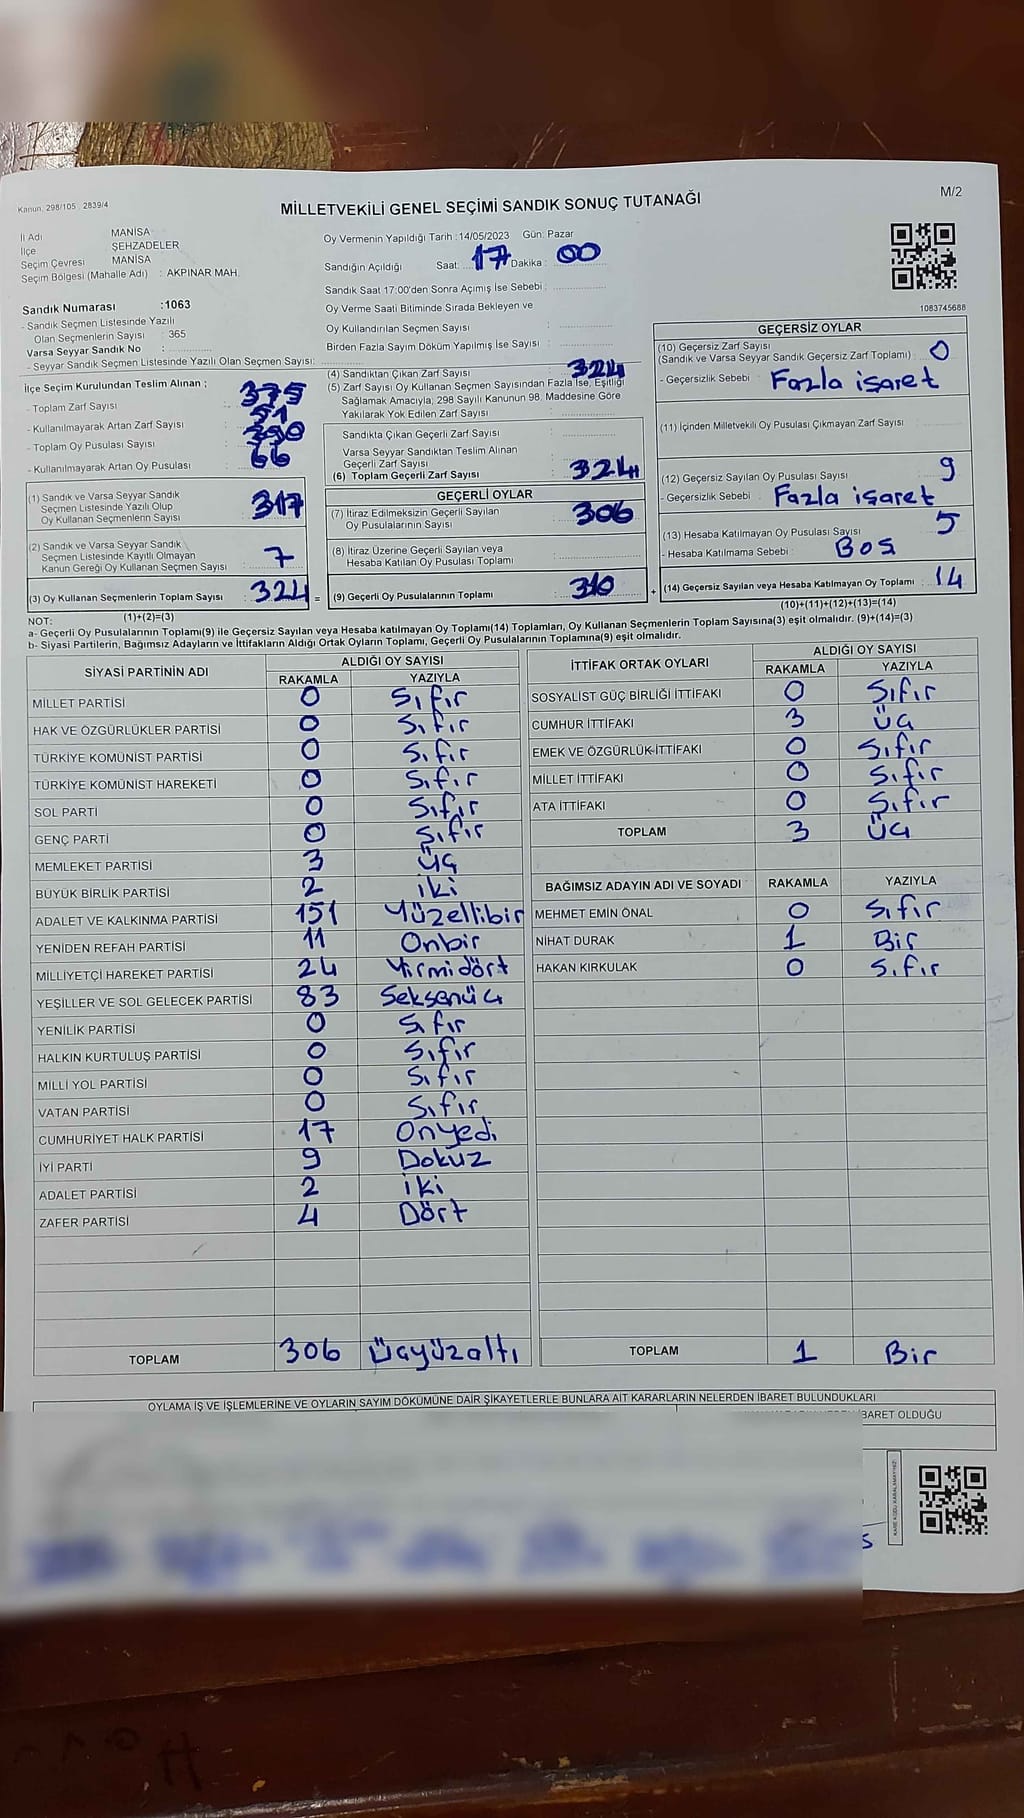 Kanun, 298/105 , 2839/4
MİLLETVEKİLİ GENEL SEÇİMİ SANDIK SONUÇ TUTANAĞI
M/2
İl Adı MANİSA
İlçe ŞEHZADELER
Seçim Çevresi MANİSA
Seçim Bölgesi (Mahalle Adı) : AKPINAR MAH.
Sandık Numarası :1063
- Sandık Seçmen Listesinde Yazılı
Olan Seçmenlerin Sayısı : 365
Varsa Seyyar Sandık No :
- Seyyar Sandık Seçmen Listesinde Yazılı Olan Seçmen Sayısı:
Oy Vermenin Yapıldığı Tarih : 14/05/2023 Gün: Pazar
Sandığın Açıldığı Saat: 17 Dakika : 00
Sandık Saat 17:00'den Sonra Açımış İse Sebebi :
Oy Verme Saati Bitiminde Sırada Bekleyen ve
Oy Kullandırılan Seçmen Sayısı :
Birden Fazla Sayım Döküm Yapılmış İse Sayısı :
1083745688
İlçe Seçim Kurulundan Teslim Alınan ;
- Toplam Zarf Sayısı : 375
- Kullanılmayarak Artan Zarf Sayısı : 51
- Toplam Oy Pusulası Sayısı : 390
- Kullanılmayarak Artan Oy Pusulası : 66
(1) Sandık ve Varsa Seyyar Sandık
Seçmen Listesinde Yazılı Olup
Oy Kullanan Seçmenlerin Sayısı : 317
(2) Sandık ve Varsa Seyyar Sandık
Seçmen Listesinde Kayıtlı Olmayan
Kanun Gereği Oy Kullanan Seçmen Sayısı : 7
(3) Oy Kullanan Seçmenlerin Toplam Sayısı : 324 =
(1)+(2)=(3)
(4) Sandıktan Çıkan Zarf Sayısı : 324
(5) Zarf Sayısı Oy Kullanan Seçmen Sayısından Fazla İse, Eşitliği
Sağlamak Amacıyla, 298 Sayılı Kanunun 98. Maddesine Göre
Yakılarak Yok Edilen Zarf Sayısı :
Sandıkta Çıkan Geçerli Zarf Sayısı :
Varsa Seyyar Sandıktan Teslim Alınan
Geçerli Zarf Sayısı :
(6) Toplam Geçerli Zarf Sayısı : 324
GEÇERLİ OYLAR
(7) İtiraz Edilmeksizin Geçerli Sayılan
Oy Pusulalarının Sayısı : 306
(8) İtiraz Üzerine Geçerli Sayılan veya
Hesaba Katılan Oy Pusulası Toplamı :
(9) Geçerli Oy Pusulalarının Toplamı : 310 +
GEÇERSİZ OYLAR
(10) Geçersiz Zarf Sayısı
(Sandık ve Varsa Seyyar Sandık Geçersiz Zarf Toplamı) : 0
- Geçersizlik Sebebi : Fazla işaret
(11) İçinden Milletvekili Oy Pusulası Çıkmayan Zarf Sayısı :
(12) Geçersiz Sayılan Oy Pusulası Sayısı : 9
- Geçersizlik Sebebi : Fazla işaret
(13) Hesaba Katılmayan Oy Pusulası Sayısı : 5
- Hesaba Katılmama Sebebi : BOS
(14) Geçersiz Sayılan veya Hesaba Katılmayan Oy Toplamı : 14
(10)+(11)+(12)+(13)=(14)
NOT:
a- Geçerli Oy Pusulalarının Toplamı(9) ile Geçersiz Sayılan veya Hesaba katılmayan Oy Toplamı(14) Toplamları, Oy Kullanan Seçmenlerin Toplam Sayısına(3) eşit olmalıdır. (9)+(14)=(3)
b- Siyasi Partilerin, Bağımsız Adayların ve İttifakların Aldığı Ortak Oyların Toplamı, Geçerli Oy Pusulalarının Toplamına(9) eşit olmalıdır.
SİYASİ PARTİNİN ADI ALDIĞI OY SAYISI
RAKAMLA YAZIYLA
MİLLET PARTİSİ 0 Sıfır
HAK VE ÖZGÜRLÜKLER PARTİSİ 0 Sıfır
TÜRKİYE KOMÜNİST PARTİSİ 0 Sıfır
TÜRKİYE KOMÜNİST HAREKETİ 0 Sıfır
SOL PARTİ 0 Sıfır
GENÇ PARTİ 0 Sıfır
MEMLEKET PARTİSİ 3 Üç
BÜYÜK BİRLİK PARTİSİ 2 iki
ADALET VE KALKINMA PARTİSİ 151 Yüzellibir
YENİDEN REFAH PARTİSİ 11 Onbir
MİLLİYETÇİ HAREKET PARTİSİ 24 Yirmidört
YEŞİLLER VE SOL GELECEK PARTİSİ 83 Seksenüç
YENİLİK PARTİSİ 0 Sıfır
HALKIN KURTULUŞ PARTİSİ 0 Sıfır
MİLLİ YOL PARTİSİ 0 Sıfır
VATAN PARTİSİ 0 Sıfır
CUMHURİYET HALK PARTİSİ 17 Onyedi
İYİ PARTİ 9 Dokuz
ADALET PARTİSİ 2 iki
ZAFER PARTİSİ 4 Dört
TOPLAM 306 Üçyüzaltı
İTTİFAK ORTAK OYLARI ALDIĞI OY SAYISI
RAKAMLA YAZIYLA
SOSYALİST GÜÇ BİRLİĞİ İTTİFAKI 0 Sıfır
CUMHUR İTTİFAKI 3 Üç
EMEK VE ÖZGÜRLÜK İTTİFAKI 0 Sıfır
MİLLET İTTİFAKI 0 Sıfır
ATA İTTİFAKI 0 Sıfır
TOPLAM 3 Üç
BAĞIMSIZ ADAYIN ADI VE SOYADI RAKAMLA YAZIYLA
MEHMET EMİN ÖNAL 0 Sıfır
NİHAT DURAK 1 Bir
HAKAN KIRKULAK 0 Sıfır
TOPLAM 1 Bir
OYLAMA İŞ VE İŞLEMLERİNE VE OYLARIN SAYIM DÖKÜMÜNE DAİR ŞİKAYETLERLE BUNLARA AİT KARARLARIN NELERDEN İBARET BULUNDUKLARI
İBARET OLDUĞU
KARE KODU KARALAMAYINIZ!